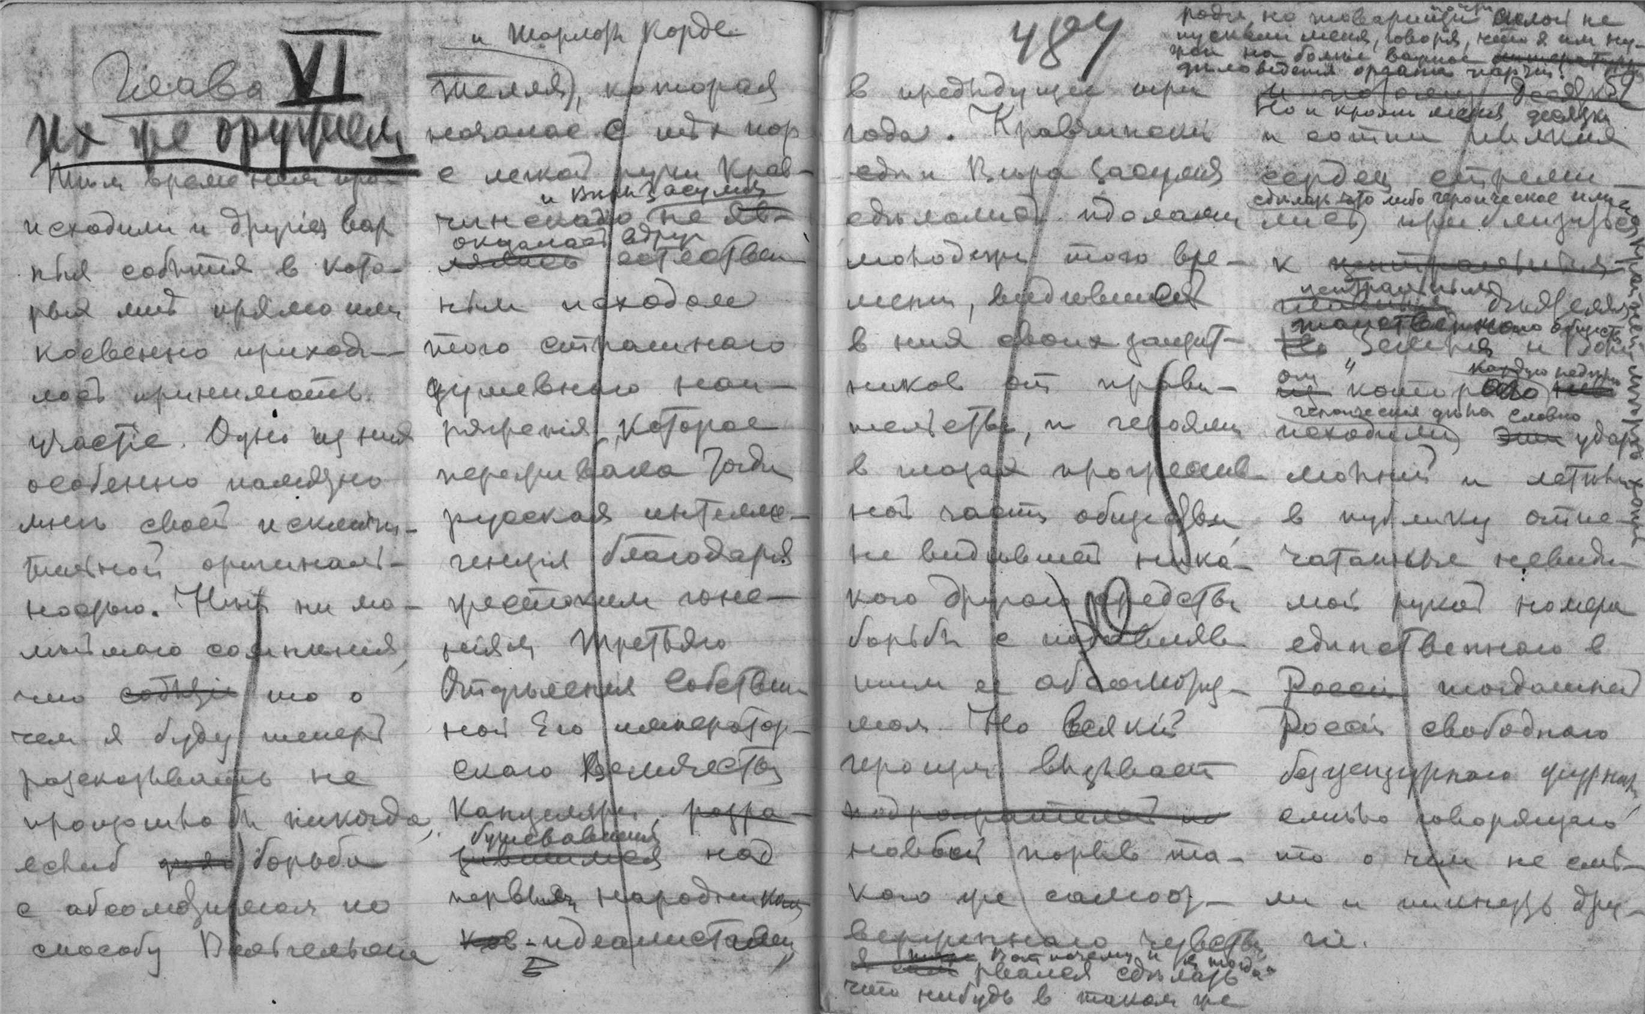 Глава VI
Их же оружием
Тем временем про-
исходили и другия вар
ныя события в кото-
рых мне прямо или
косвенно приходи-
лось принимать
участие. Одно из них
особенно памятно
мне своей исключи-
тельной оригиналь-
ностью. Нет ни ма-
лейшаго сомнения,
что событие то о
чем я буду теперь
разсказывать не
произошло бы никогда,
еслиб борьба
с абсолютизмом по
способу Вильгельма
и Шарлоты Корде
Телля), которая
началась с тех пор
с легкой руки Крав-
и Веры Засулич
чинскаго не яв-
оказалась вдруг
лялась естествен-
ным исходом
того страшнаго
душевнаго нап-
ряжения, которое
переживала тогда
русская интелли-
генция благодаря
жестоким гоне-
ниям Третьяго
Отделения Собствен
ной Его император-
скаго Величества
Канцелярии, разра-
бушевавшимся
зившимся над
первыми народниками
ков-идеалистами,
484
в предыдущие три
года. Кравчинский
и Вера Засулич
сделались идолами
молодежи того вре-
мени, видевшей
в них своих защит-
ников от прави-
тельства, и героями
в глазах прогрессив
ной части общества
не видевшей ника-
кого другого средства
борьбы с подавляв-
шим ее абсолютиз-
мом. Но всякий
героизм вызывает
подражателей и
новый порыв та-
кого же самоот-
верженнаго чувства
Вот почему и я тогда
рвался сделать
что нибудь в таком же
роде, но товарищи почти силой не
пускали меня, говоря, что я им ну-
жен на более важное
для ведения органа партии.
Но и кроме меня десятки
и сотни пылких
сердец стреми-
сделать что либо героическое или
лись приблизиться
к центральным
центральным деятелям
таинственнаго общества
"Земля и Воля"
от котораго
героические дела словно
исходили удары
молний и летели
в публику отпе-
чатанные невиди-
мой рукой номера
единственнаго в
России тогдашней
России свободнаго
безцензурнаго журнала,
смело говорящаго
то о чем не сме-
ли и пикнуть дру-
гие.